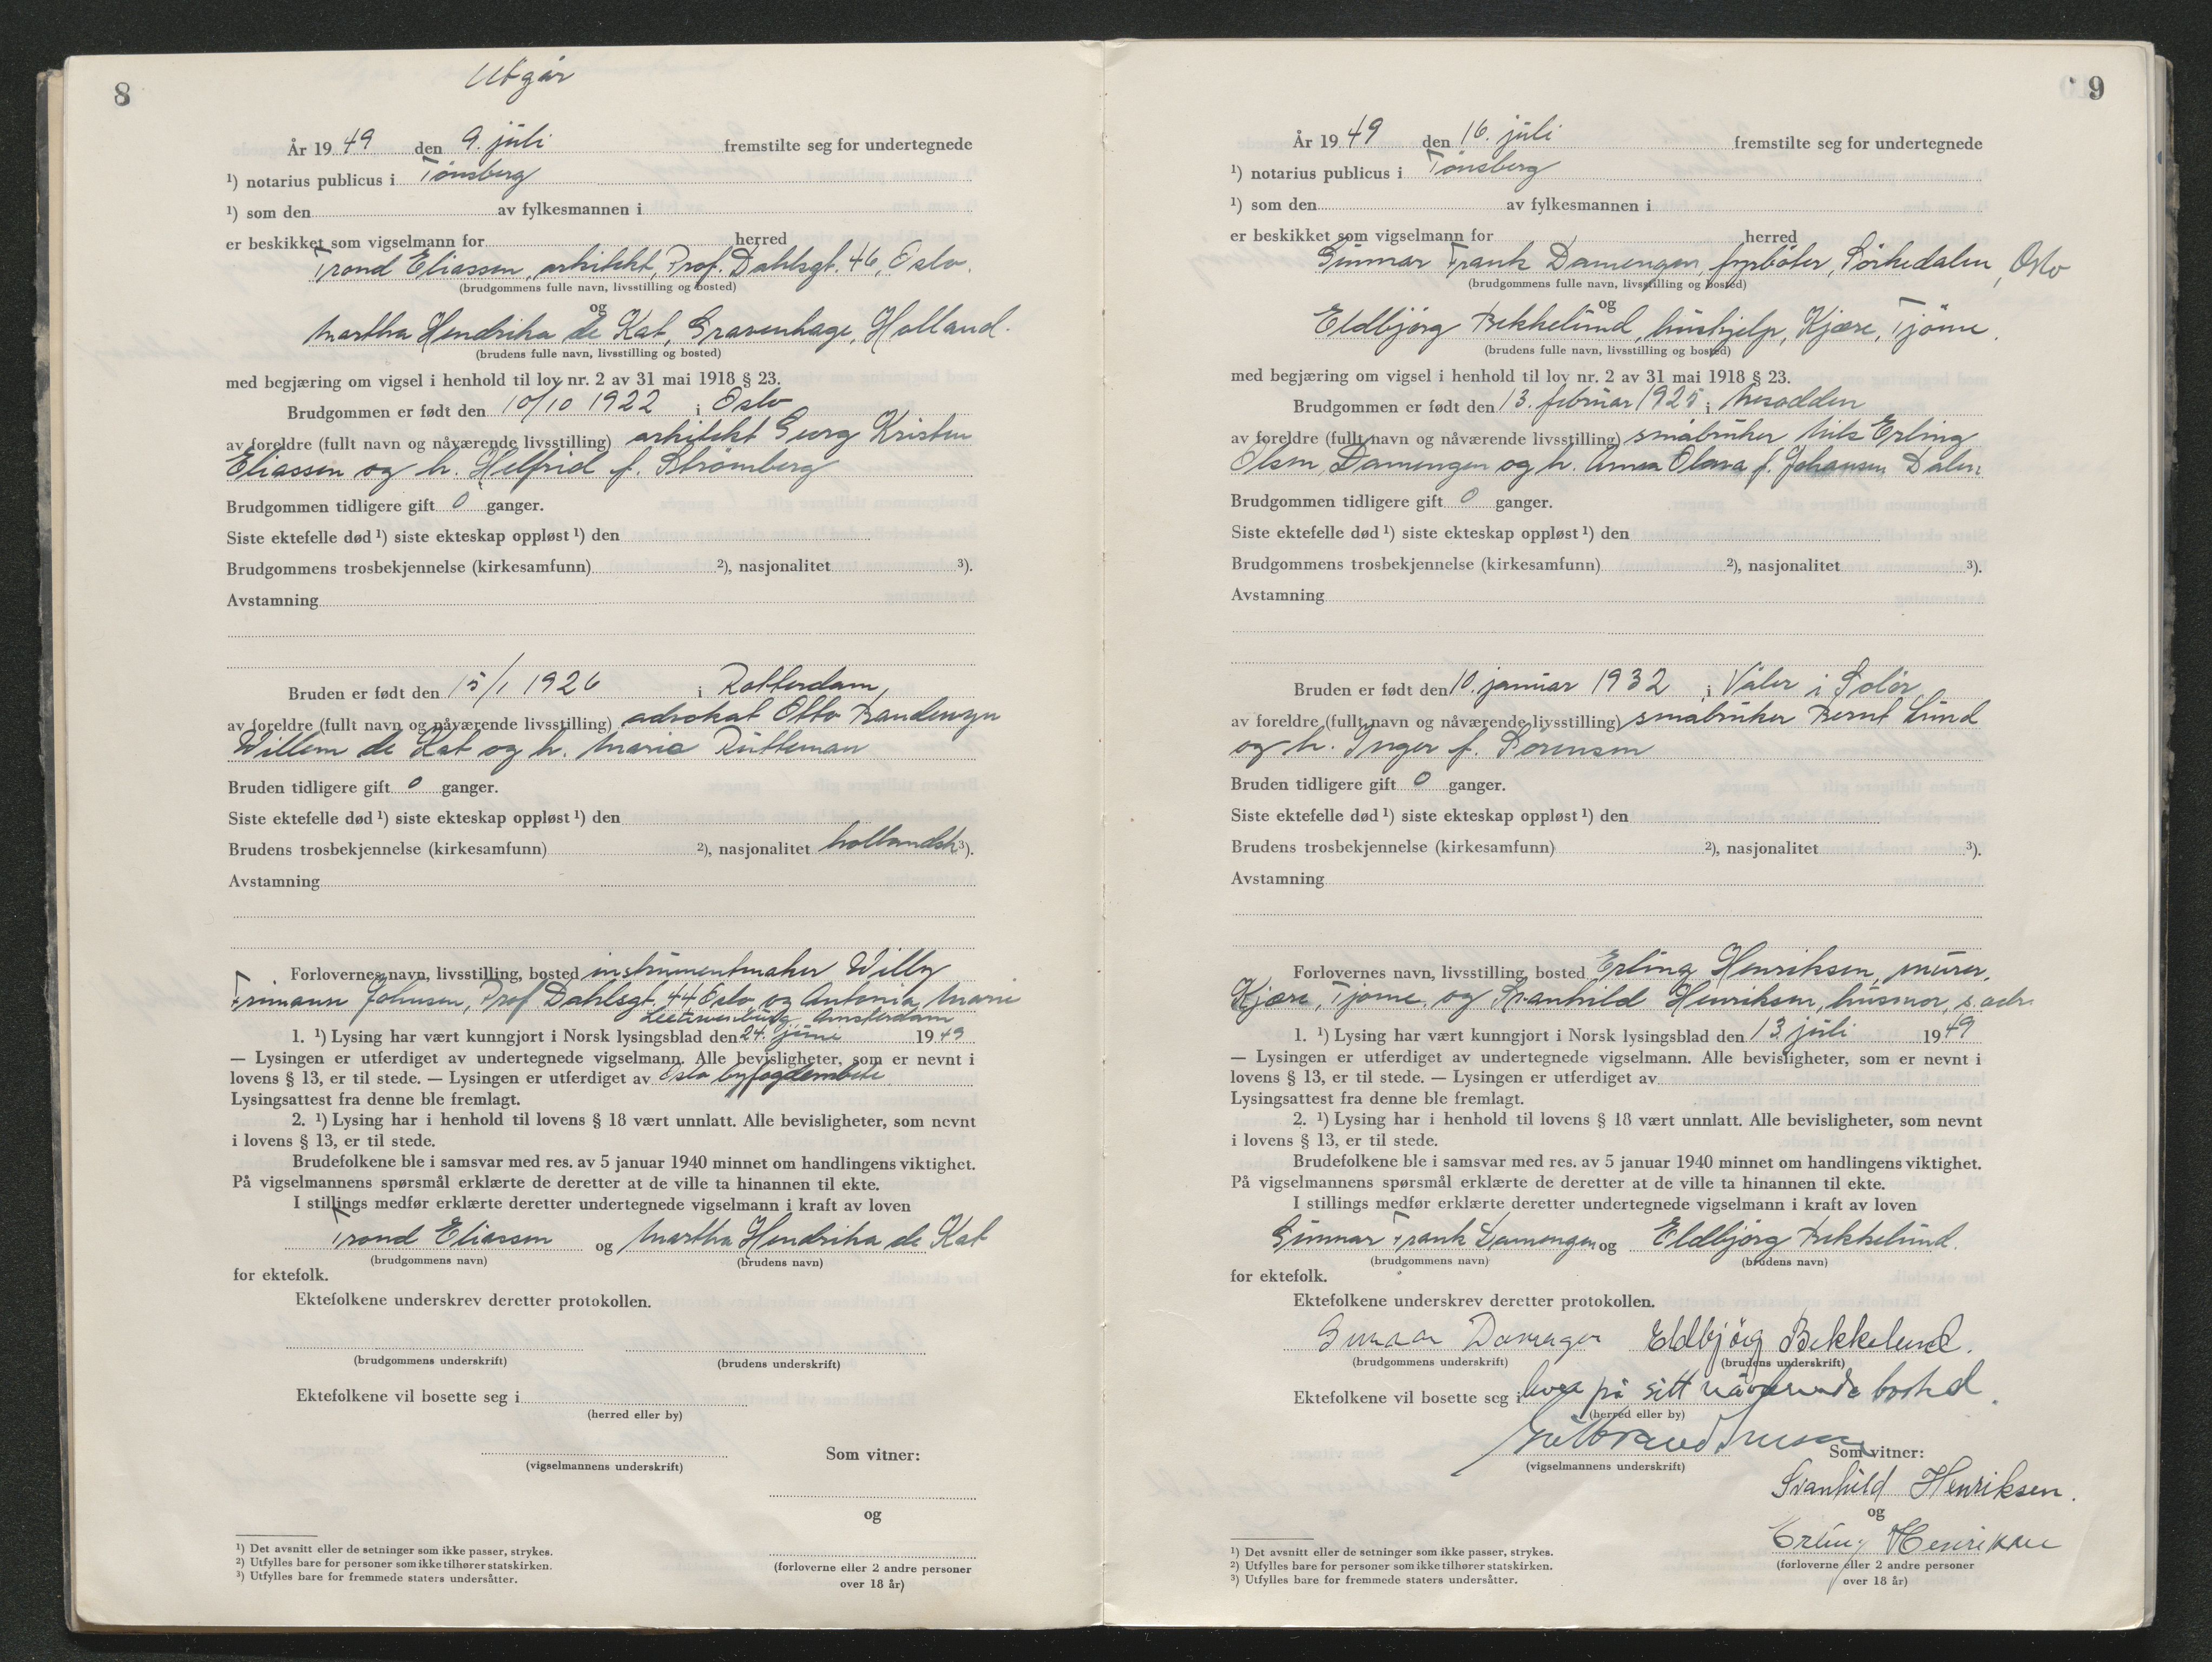 8
Utgår
År 1949 den 9. juli fremstilte seg for undertegnede
¹) notarius publicus i Tønsberg
¹) som den av fylkesmannen i
er beskikket som vigselmann for herred
Trond Eliassen, arkitekt, Prof. Dahlsgt. 46, Oslo.
(brudgommens fulle navn, livsstilling og bosted)
og
Martha Hendrika de Kat, Gravenhage, Holland.
(brudens fulle navn, livsstilling og bosted)
med begjæring om vigsel i henhold til lov nr. 2 av 31 mai 1918 § 23.
Brudgommen er født den 10/10 1922 i Oslo
av foreldre (fullt navn og nåværende livsstilling) arkitekt Georg Kristian
Eliassen og h. Helfrid f. Strømberg
Brudgommen tidligere gift 0 ganger.
Siste ektefelle død ¹) siste ekteskap oppløst ¹) den
Brudgommens trosbekjennelse (kirkesamfunn) ²), nasjonalitet ³).
Avstamning
Bruden er født den 15/1 1926 i Rotterdam,
av foreldre (fullt navn og nåværende livsstilling) advokat Otto
Willem de Kat og h. Maria Rutteman
Bruden tidligere gift 0 ganger.
Siste ektefelle død ¹) siste ekteskap oppløst ¹) den
Brudens trosbekjennelse (kirkesamfunn) ²), nasjonalitet hollandsk ³).
Avstamning
Forlovernes navn, livsstilling, bosted instrumentmaker Willy
Frimann Johnsen, Prof Dahlsgt. 44 Oslo og Antonia Marie
Amsterdam
1. ¹) Lysing har vært kunngjort i Norsk lysingsblad den 24. juni 1949
— Lysingen er utferdiget av undertegnede vigselmann. Alle bevisligheter, som er nevnt i
lovens § 13, er til stede. — Lysingen er utferdiget av Oslo byfogdembete
Lysingsattest fra denne ble fremlagt.
2. ¹) Lysing har i henhold til lovens § 18 vært unnlatt. Alle bevisligheter, som nevnt
i lovens § 13, er til stede.
Brudefolkene ble i samsvar med res. av 5 januar 1940 minnet om handlingens viktighet.
På vigselmannens spørsmål erklærte de deretter at de ville ta hinannen til ekte.
I stillings medfør erklærte deretter undertegnede vigselmann i kraft av loven
Trond Eliassen og Martha Hendrika de Kat
(brudgommens navn) (brudens navn)
for ektefolk.
Ektefolkene underskrev deretter protokollen.
(brudgommens underskrift) (brudens underskrift)
Ektefolkene vil bosette seg i
(herred eller by)
Som vitner:
(vigselmannens underskrift)
og
(forloverne eller 2 andre personer
over 18 år)
¹) Det avsnitt eller de setninger som ikke passer, strykes.
²) Utfylles bare for personer som ikke tilhører statskirken.
³) Utfylles bare for fremmede staters undersåtter.
9
År 1949 den 16. juli fremstilte seg for undertegnede
¹) notarius publicus i Tønsberg
¹) som den av fylkesmannen i
er beskikket som vigselmann for herred
Gunnar Frank Damengen, fyrbøter, Sørkedalen, Oslo
(brudgommens fulle navn, livsstilling og bosted)
og
Eldbjørg Bekkelund, hushjelp, Kjære, Tjøme.
(brudens fulle navn, livsstilling og bosted)
med begjæring om vigsel i henhold til lov nr. 2 av 31 mai 1918 § 23.
Brudgommen er født den 13. februar 1925 i Nesodden
av foreldre (fullt navn og nåværende livsstilling) småbruker Nils Erling
Olsen Damengen og h. Anna Olava f. Johansen Dalen
Brudgommen tidligere gift 0 ganger.
Siste ektefelle død ¹) siste ekteskap oppløst ¹) den
Brudgommens trosbekjennelse (kirkesamfunn) ²), nasjonalitet ³).
Avstamning
Bruden er født den 10. januar 1932 i Våler i Solør
av foreldre (fullt navn og nåværende livsstilling) småbruker Bernt Lund
og h. Inger f. Sørensen
Bruden tidligere gift 0 ganger.
Siste ektefelle død ¹) siste ekteskap oppløst ¹) den
Brudens trosbekjennelse (kirkesamfunn) ²), nasjonalitet ³).
Avstamning
Forlovernes navn, livsstilling, bosted Erling Henriksen, murer,
Kjære, Tjøme, og Svanhild Henriksen, husmor, s. adr.
1. ¹) Lysing har vært kunngjort i Norsk lysingsblad den 13 juli 1949
— Lysingen er utferdiget av undertegnede vigselmann. Alle bevisligheter, som er nevnt i
lovens § 13, er til stede. — Lysingen er utferdiget av
Lysingsattest fra denne ble fremlagt.
2. ¹) Lysing har i henhold til lovens § 18 vært unnlatt. Alle bevisligheter, som nevnt
i lovens § 13, er til stede.
Brudefolkene ble i samsvar med res. av 5 januar 1940 minnet om handlingens viktighet.
På vigselmannens spørsmål erklærte de deretter at de ville ta hinannen til ekte.
I stillings medfør erklærte deretter undertegnede vigselmann i kraft av loven
Gunnar Frank Damengen og Eldbjørg Bekkelund.
(brudgommens navn) (brudens navn)
for ektefolk.
Ektefolkene underskrev deretter protokollen.
Gunnar Damengen Eldbjørg Bekkelund.
(brudgommens underskrift) (brudens underskrift)
Ektefolkene vil bosette seg i hver på sitt nåværende bosted.
(herred eller by)
Som vitner:
(vigselmannens underskrift)
Svanhild Henriksen.
og
Erling Henriksen
(forloverne eller 2 andre personer
over 18 år)
¹) Det avsnitt eller de setninger som ikke passer, strykes.
²) Utfylles bare for personer som ikke tilhører statskirken.
³) Utfylles bare for fremmede staters undersåtter.